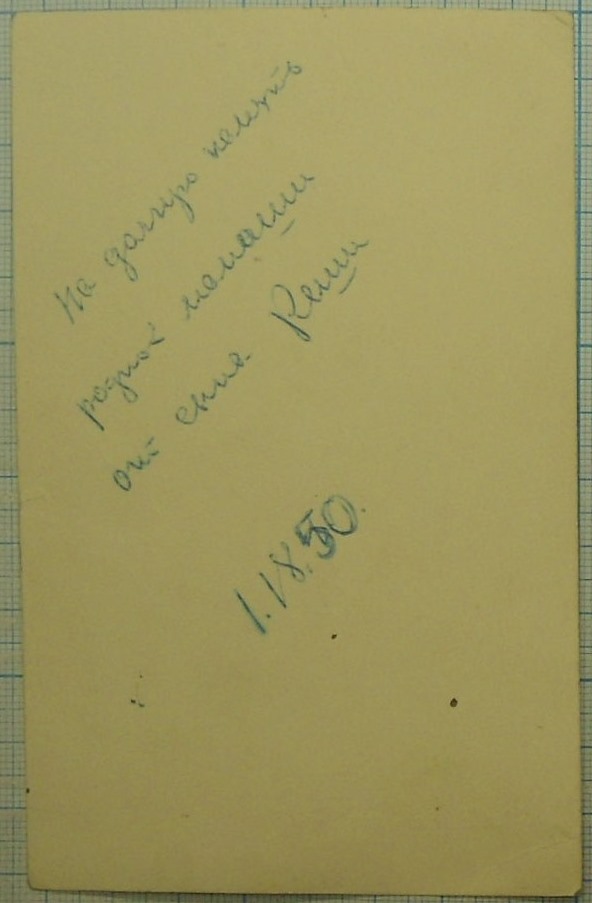 На долгую память
родной мамаши
от сына Кеши
1.18.50.